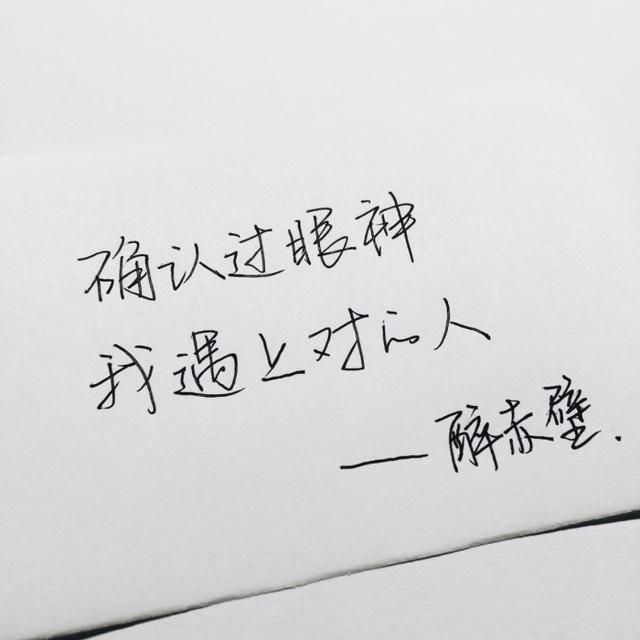 确认过眼神
我遇上对的人
——醉赤壁.